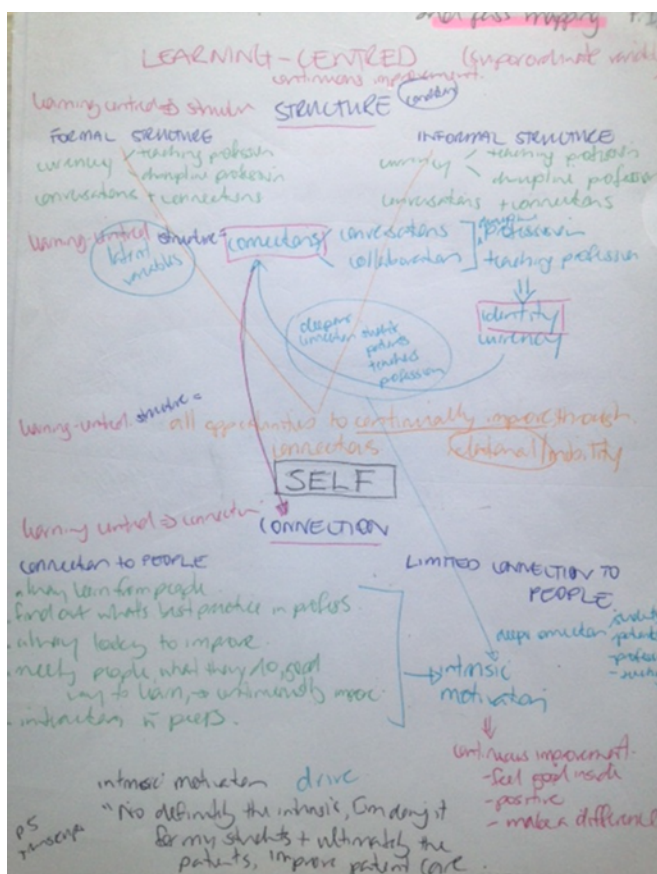 mapping
LEARNING-CENTRED (superordinate
continuous improvement.
STRUCTURE condition
FORMAL STRUCTURE
currency teaching profession
discipline profession
conversations + connections
INFORMAL STRUCTURE
currency teaching profession
discipline profession
conversations + connections
learning-centred structure = connections conversations profession
latent variables
collaboration teaching profession
identity
currency
deeper
connection students
patients
teachers
profession
learning-centred structure =
all opportunities to continually improve through
connections relational/mobility
SELF
learning centred => connection
CONNECTION
connection to PEOPLE
- always learn from people
- find out whats best practice in profess.
- always looking to improve.
- meeting people, what they do, good
way to learn, → continuously improve
- interaction peers.
LIMITED CONNECTION TO
PEOPLE
deeper connection
intrinsic
motivation
continuous improvement.
- feel good inside
- positive
- make a difference
intrinsic motivation drive
"No definitely the intrinsic, I'm doing it
for my students + ultimately the
patients, improve patient care.
P5
transcript